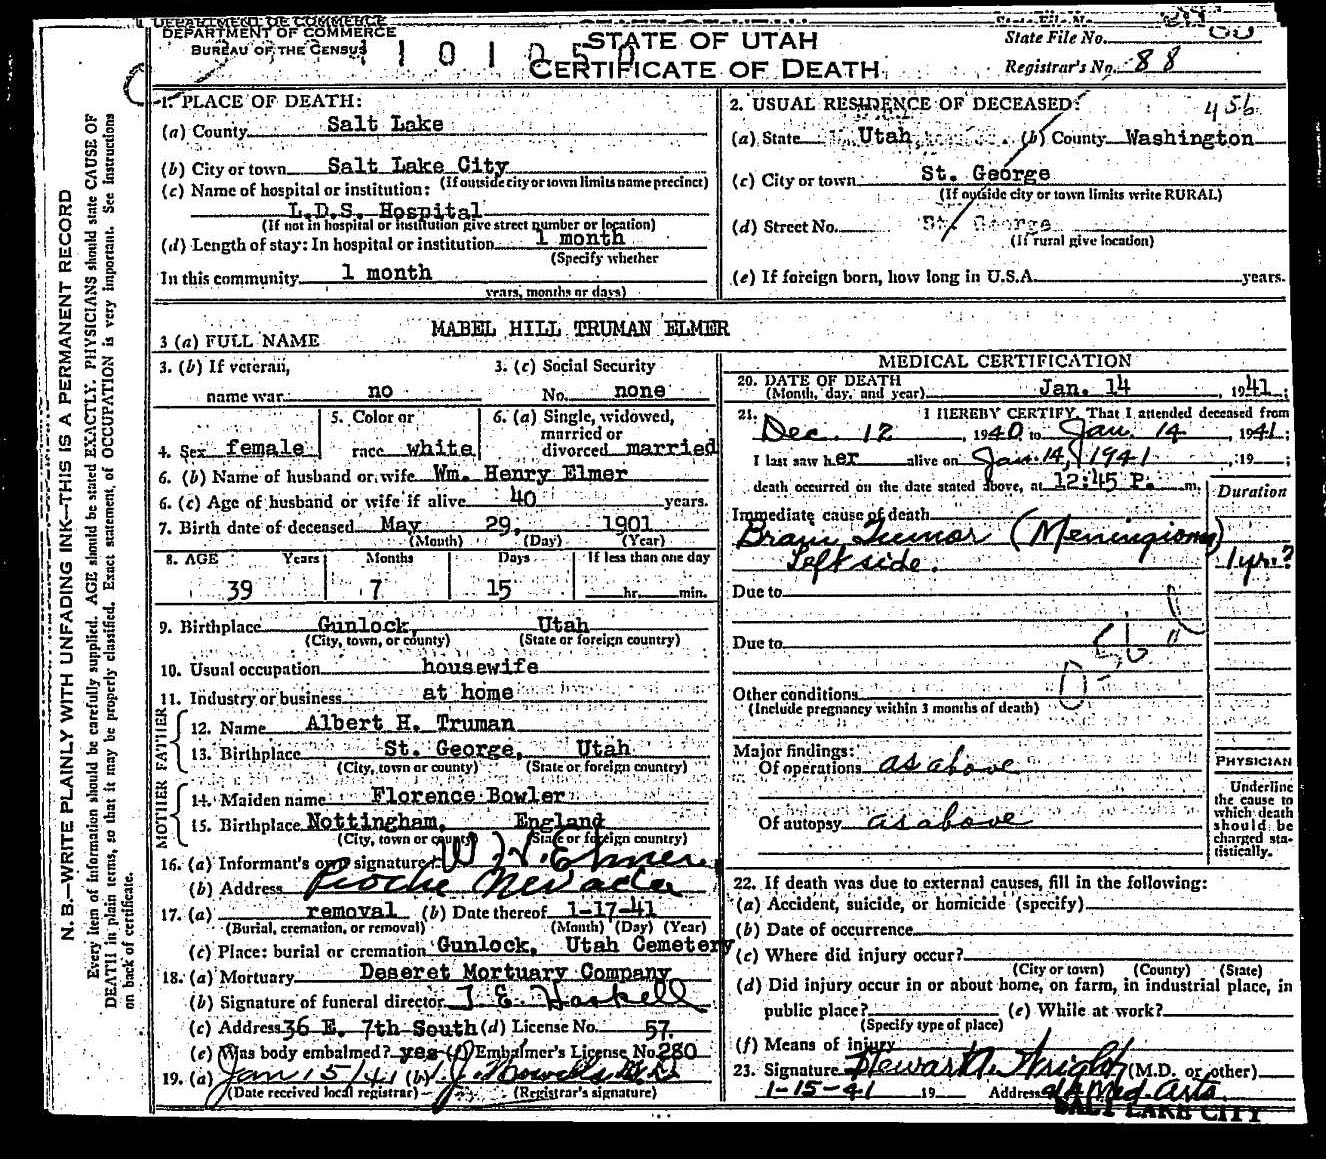 DEPARTMENT OF COMMERCE
DEPARTMENT OF COMMERCE
BUREAU OF THE CENSUS
1 1 0 1 0 5 0
STATE OF UTAH
CERTIFICATE OF DEATH
State File No.
Registrar's No. 88
N. B.—WRITE PLAINLY WITH UNFADING INK—THIS IS A PERMANENT RECORD
Every item of information should be carefully supplied. AGE should be stated EXACTLY. PHYSICIANS should state CAUSE OF
DEATH in plain terms, so that it may be properly classified. Exact statement of OCCUPATION is very important. See instructions
on back of certificate.
1. PLACE OF DEATH:
(a) County Salt Lake
(b) City or town Salt Lake City
(If outside city or town limits name precinct)
(c) Name of hospital or institution:
L.D.S. Hospital
(If not in hospital or institution give street number or location)
(d) Length of stay: In hospital or institution 1 month
(Specify whether
In this community 1 month
years, months or days)
2. USUAL RESIDENCE OF DECEASED:
456
(a) State Utah (b) County Washington
(c) City or town St. George
(If outside city or town limits write RURAL)
(d) Street No. St. George
(If rural give location)
(e) If foreign born, how long in U.S.A. years.
3 (a) FULL NAME MABEL HILL TRUMAN ELMER
3. (b) If veteran, name war no
3. (c) Social Security No. none
4. Sex female
5. Color or race white
6. (a) Single, widowed, married or divorced married
6. (b) Name of husband or wife Wm. Henry Elmer
6. (c) Age of husband or wife if alive 40 years.
7. Birth date of deceased May 29, 1901
(Month) (Day) (Year)
8. AGE Years Months Days If less than one day
39 7 15 hr. min.
9. Birthplace Gunlock, Utah
(City, town, or county) (State or foreign country)
10. Usual occupation housewife
11. Industry or business at home
FATHER
12. Name Albert H. Truman
13. Birthplace St. George, Utah
(City, town or county) (State or foreign country)
MOTHER
14. Maiden name Florence Bowler
15. Birthplace Nottingham, England
(City, town or county) (State or foreign country)
16. (a) Informant's own signature W. H. Elmer
(b) Address Pioche Nevada
17. (a) removal (b) Date thereof 1-17-41
(Burial, cremation, or removal) (Month) (Day) (Year)
(c) Place: burial or cremation Gunlock, Utah Cemetery
18. (a) Mortuary Deseret Mortuary Company
(b) Signature of funeral director J. E. Haskell
(c) Address 36 E. 7th South (d) License No. 57.
(e) Was body embalmed? yes (f) Embalmer's License No. 280
19. (a) Jan 15/41 (b)
(Date received local registrar) (Registrar's signature)
MEDICAL CERTIFICATION
20. DATE OF DEATH
(Month, day, and year) Jan. 14, 1941;
21. I HEREBY CERTIFY, That I attended deceased from
Dec. 12, 1940 to Jan. 14, 1941;
I last saw her alive on Jan. 14, 1941, 19 ;
death occurred on the date stated above, at 12:45 P. m.
Duration
Immediate cause of death
Brain Tumor (Meningioma)
Left side. 1 yr.?
Due to
Due to
Other conditions
(Include pregnancy within 3 months of death)
Major findings:
Of operations as above
Of autopsy as above
PHYSICIAN
Underline
the cause to
which death
should be
charged sta-
tistically.
22. If death was due to external causes, fill in the following:
(a) Accident, suicide, or homicide (specify)
(b) Date of occurrence
(c) Where did injury occur?
(City or town) (County) (State)
(d) Did injury occur in or about home, on farm, in industrial place, in
public place? (e) While at work?
(Specify type of place)
(f) Means of injury
23. Signature Stewart A. Wright (M.D. or other)
1-15-41 19 Address Med. Arts
SALT LAKE CITY